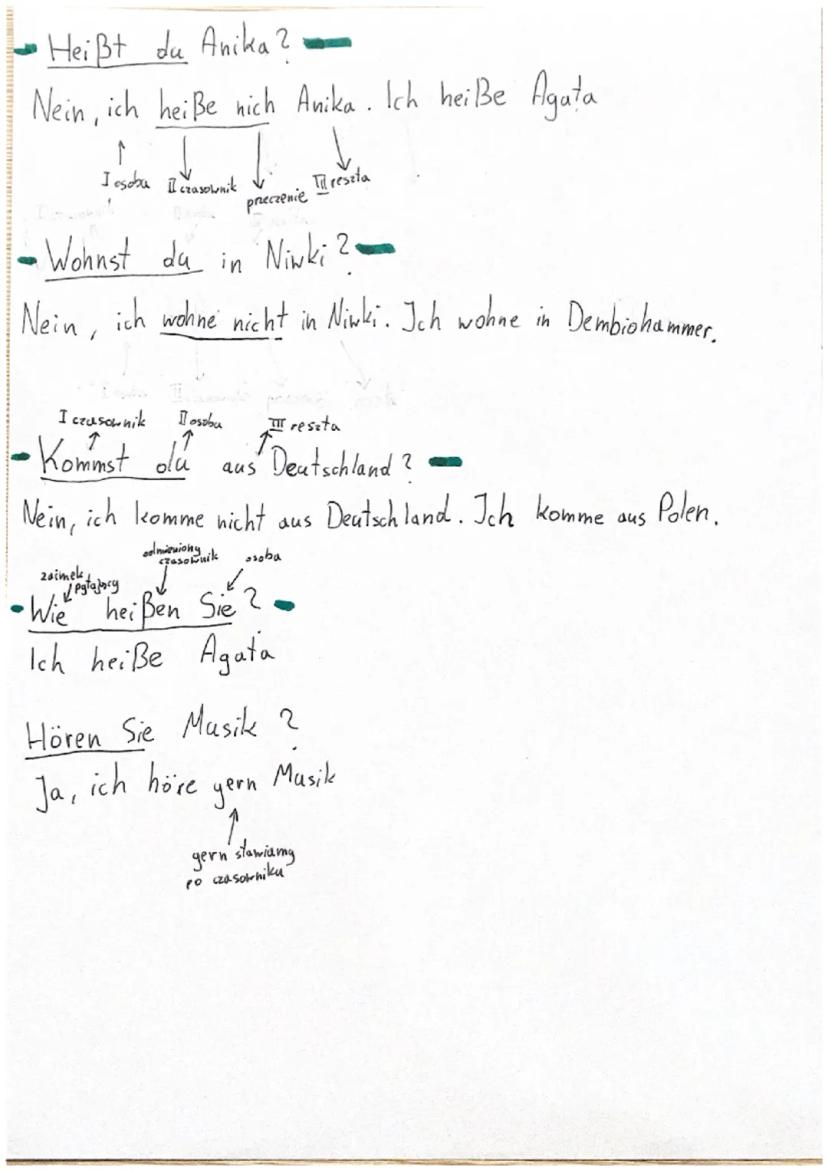 - Heißt du Anika? -
Nein, ich heiße nich Anika. Ich heiße Agata
I osoba II czasownik przeczenie III reszta
- Wohnst du in Niwki? -
Nein, ich wohne nicht in Niwki. Ich wohne in Dembiohammer.
I czasownik II osoba III reszta
- Kommst du aus Deutschland? -
Nein, ich komme nicht aus Deutschland. Ich komme aus Polen.
zaimek pytający odmieniony czasownik osoba
- Wie heißen Sie? -
Ich heiße Agata
Hören Sie Musik?
Ja, ich höre gern Musik
gern stawiamy
po czasowniku